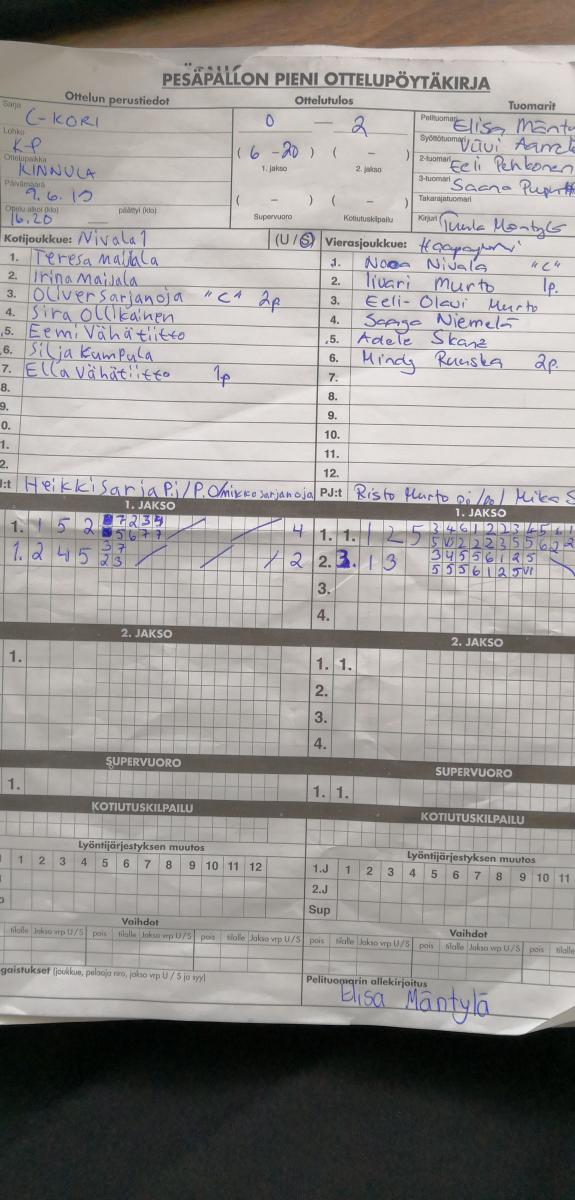 PESÄPALLON PIENI OTTELUPÖYTÄKIRJA
Ottelun perustiedot
Ottelutulos
Tuomarit
Sarja C-KORI
Lohko KP
Ottelupaikka KINNULA
Päivämäärä 9.6.19
Ottelu alkoi (klo) 16.20 päättyi (klo)
0 — 2
( 6 - 20 ) ( - )
1. jakso 2. jakso
( - ) ( - )
Supervuoro Kotiutuskilpailu
Pelituomari Elisa Mänty
Syöttötuomari
2-tuomari Eeli Pehkonen
3-tuomari Saana
Takarajatuomari
Kirjuri Tuula Mäntylä
Kotijoukkue: Nivala1 (U / S)
1. Teresa Maijala
2. Irina Maijala
3. Oliver Sarjanoja "C" 2p
4. Sira Ollikainen
5. Eemi Vähätiitto
6. Silja Kumpula
7. Ella Vähätiitto 1p
8.
9.
0.
1.
2.
J:t Heikki Sarja P.j/P.O/mikko sarjanoja
Vierasjoukkue:
1. Nooa Nivala "C"
2. Iivari Murto 1p.
3. Eeli-Olavi Murto
4. Saaga Niemelä
5. Adele Skanz
6. Mindy Ruuska 2p.
7.
8.
9.
10.
11.
12.
PJ:t Risto Murto pj/po/ Mika S
1. JAKSO
1. 1 5 2 7 2 3 4
5 6 7 7 4
1. 2 4 5 3 7
2 3 2
1. JAKSO
1. 1. 1 2 5 3 4 6 1 2 2 3 4 5
2. 3. 1 3 3 4 5 5 6 1 2 5
5 5 5 6 1 2 5 VI
3.
4.
2. JAKSO
1.
2. JAKSO
1. 1.
2.
3.
4.
SUPERVUORO
1.
SUPERVUORO
1. 1.
KOTIUTUSKILPAILU
KOTIUTUSKILPAILU
Lyöntijärjestyksen muutos
1 2 3 4 5 6 7 8 9 10 11 12
Lyöntijärjestyksen muutos
1.J 1 2 3 4 5 6 7 8 9 10 11
2.J
Sup
Vaihdot
tilalle Jakso vrp U / S pois tilalle Jakso vrp U / S pois tilalle Jakso vrp U / S
Vaihdot
pois tilalle Jakso vrp U / S pois tilalle Jakso vrp U / S pois tilalle
gaistukset (joukkue, pelaaja nro, jakso vrp U / S ja syy)
Pelituomarin allekirjoitus
Elisa Mäntylä